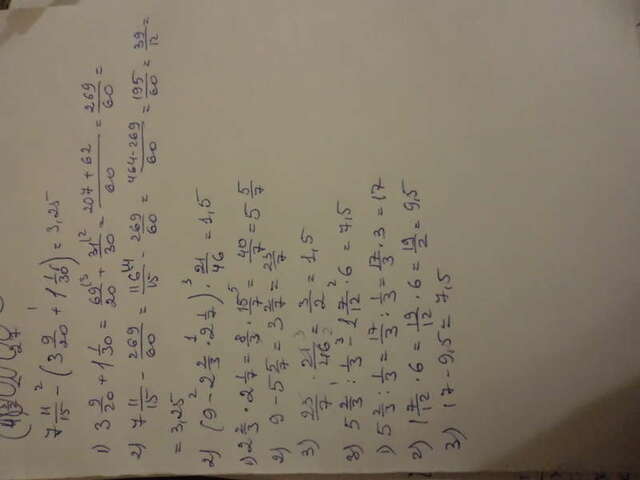 7 11/15 - (3 9/20 + 1 1/30) = 3,25
1) 3 9/20 + 1 1/30 = 69/20 + 31/30 = 207 + 62/60 = 269/60 =
2) 7 11/15 - 269/60 = 116/15 - 269/60 = 464-269/60 = 195/60 = 39/12
= 3,25
2) (9 - 2 2/3 · 2 1/7) · 21/46 = 1,5
1) 2 2/3 · 2 1/7 = 8/3 · 15/7 = 40/7 = 5 5/7
2) 9 - 5 5/7 = 3 2/7 = 23/7
3) 23/7 · 21/46 = 3/2 = 1,5
3) 5 2/3 : 1/3 - 1 7/12 · 6 = 7,5
1) 5 2/3 : 1/3 = 17/3 : 1/3 = 17/3 · 3 = 17
2) 1 7/12 · 6 = 19/12 · 6 = 19/2 = 9,5
3) 17 - 9,5 = 7,5